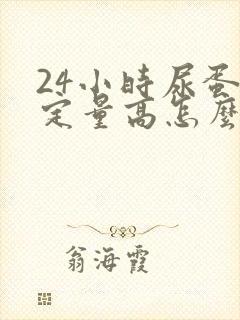 24小時尿蛋
定量高怎麼
翁海霞